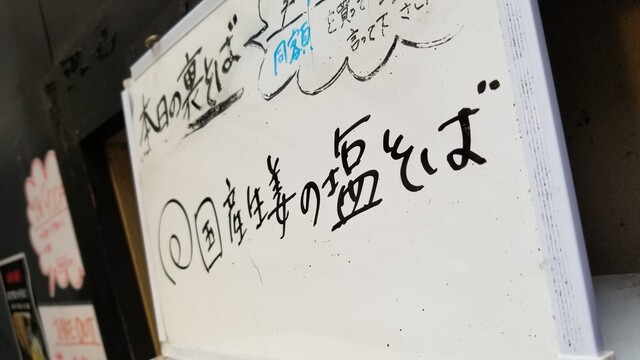 本日の裏そば
同額
と買って
言って下さい
国産生姜の塩そば
TAKE OUT